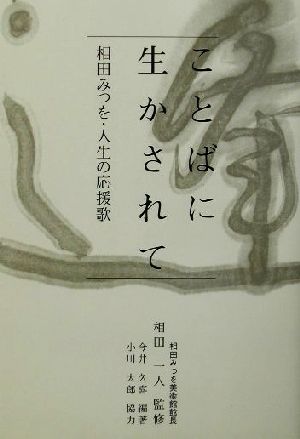 ことばに
生かされて
相田みつを・人生の応援歌
相田みつを美術館館長
相田一人 監修
今井久弥 編著
小川太郎 協力